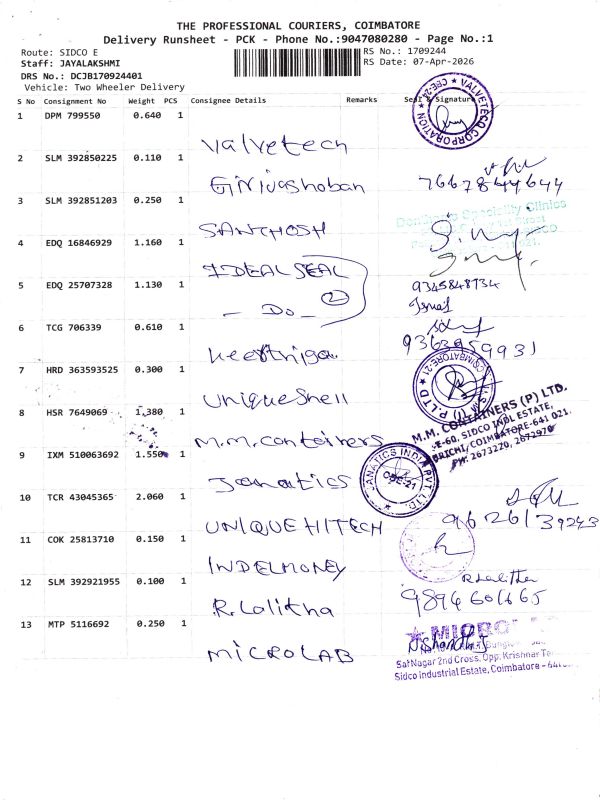 THE PROFESSIONAL COURIERS, COIMBATORE
Delivery Runsheet - PCK - Phone No.:9047080280 - Page No.:1
Route: SIDCO E
RS No.: 1709244
Staff: JAYALAKSHMI
RS Date: 07-Apr-2026
DRS No.: DCJB170924401
Vehicle: Two Wheeler Delivery
S No Consignment No Weight PCS Consignee Details Remarks Seal & Signature
1 DPM 799550 0.640 1
Valvetech
VALVETECO CORPORATION
CBE-24
2 SLM 392850225 0.110 1
Girivashoban
7667844644
3 SLM 392851203 0.250 1
SANTHOSH
Speciality Clinics
4 EDQ 16846929 1.160 1
IDEAL SEAL
5 EDQ 25707328 1.130 1
- Do - 2
9345848734
6 TCG 706339 0.610 1
Keerthiga
9363959931
7 HRD 363593525 0.300 1
Uniqueshell
COIMBATORE-21
P.LTD
8 HSR 7649069 1.380 1
M.M. Containers
M.M. CONTAINERS (P) LTD.
E-60, SIDCO INDL ESTATE,
COIMBATORE-641 021.
PH: 2673220, 2672970
9 IXM 510063692 1.550 1
Janatics
JANATICS INDIA PVT. LTD
CBE-21
10 TCR 43045365 2.060 1
UNIQUE HITECH
9626139243
11 COK 25813710 0.150 1
INDELMONEY
12 SLM 392921955 0.100 1
R.Lalitha
R.Lalitha
9894601665
13 MTP 5116692 0.250 1
MICROLAB
MICRO
SatNagar 2nd Cross, Opp. Krishnar
Sidco Industrial Estate, Coimbatore -